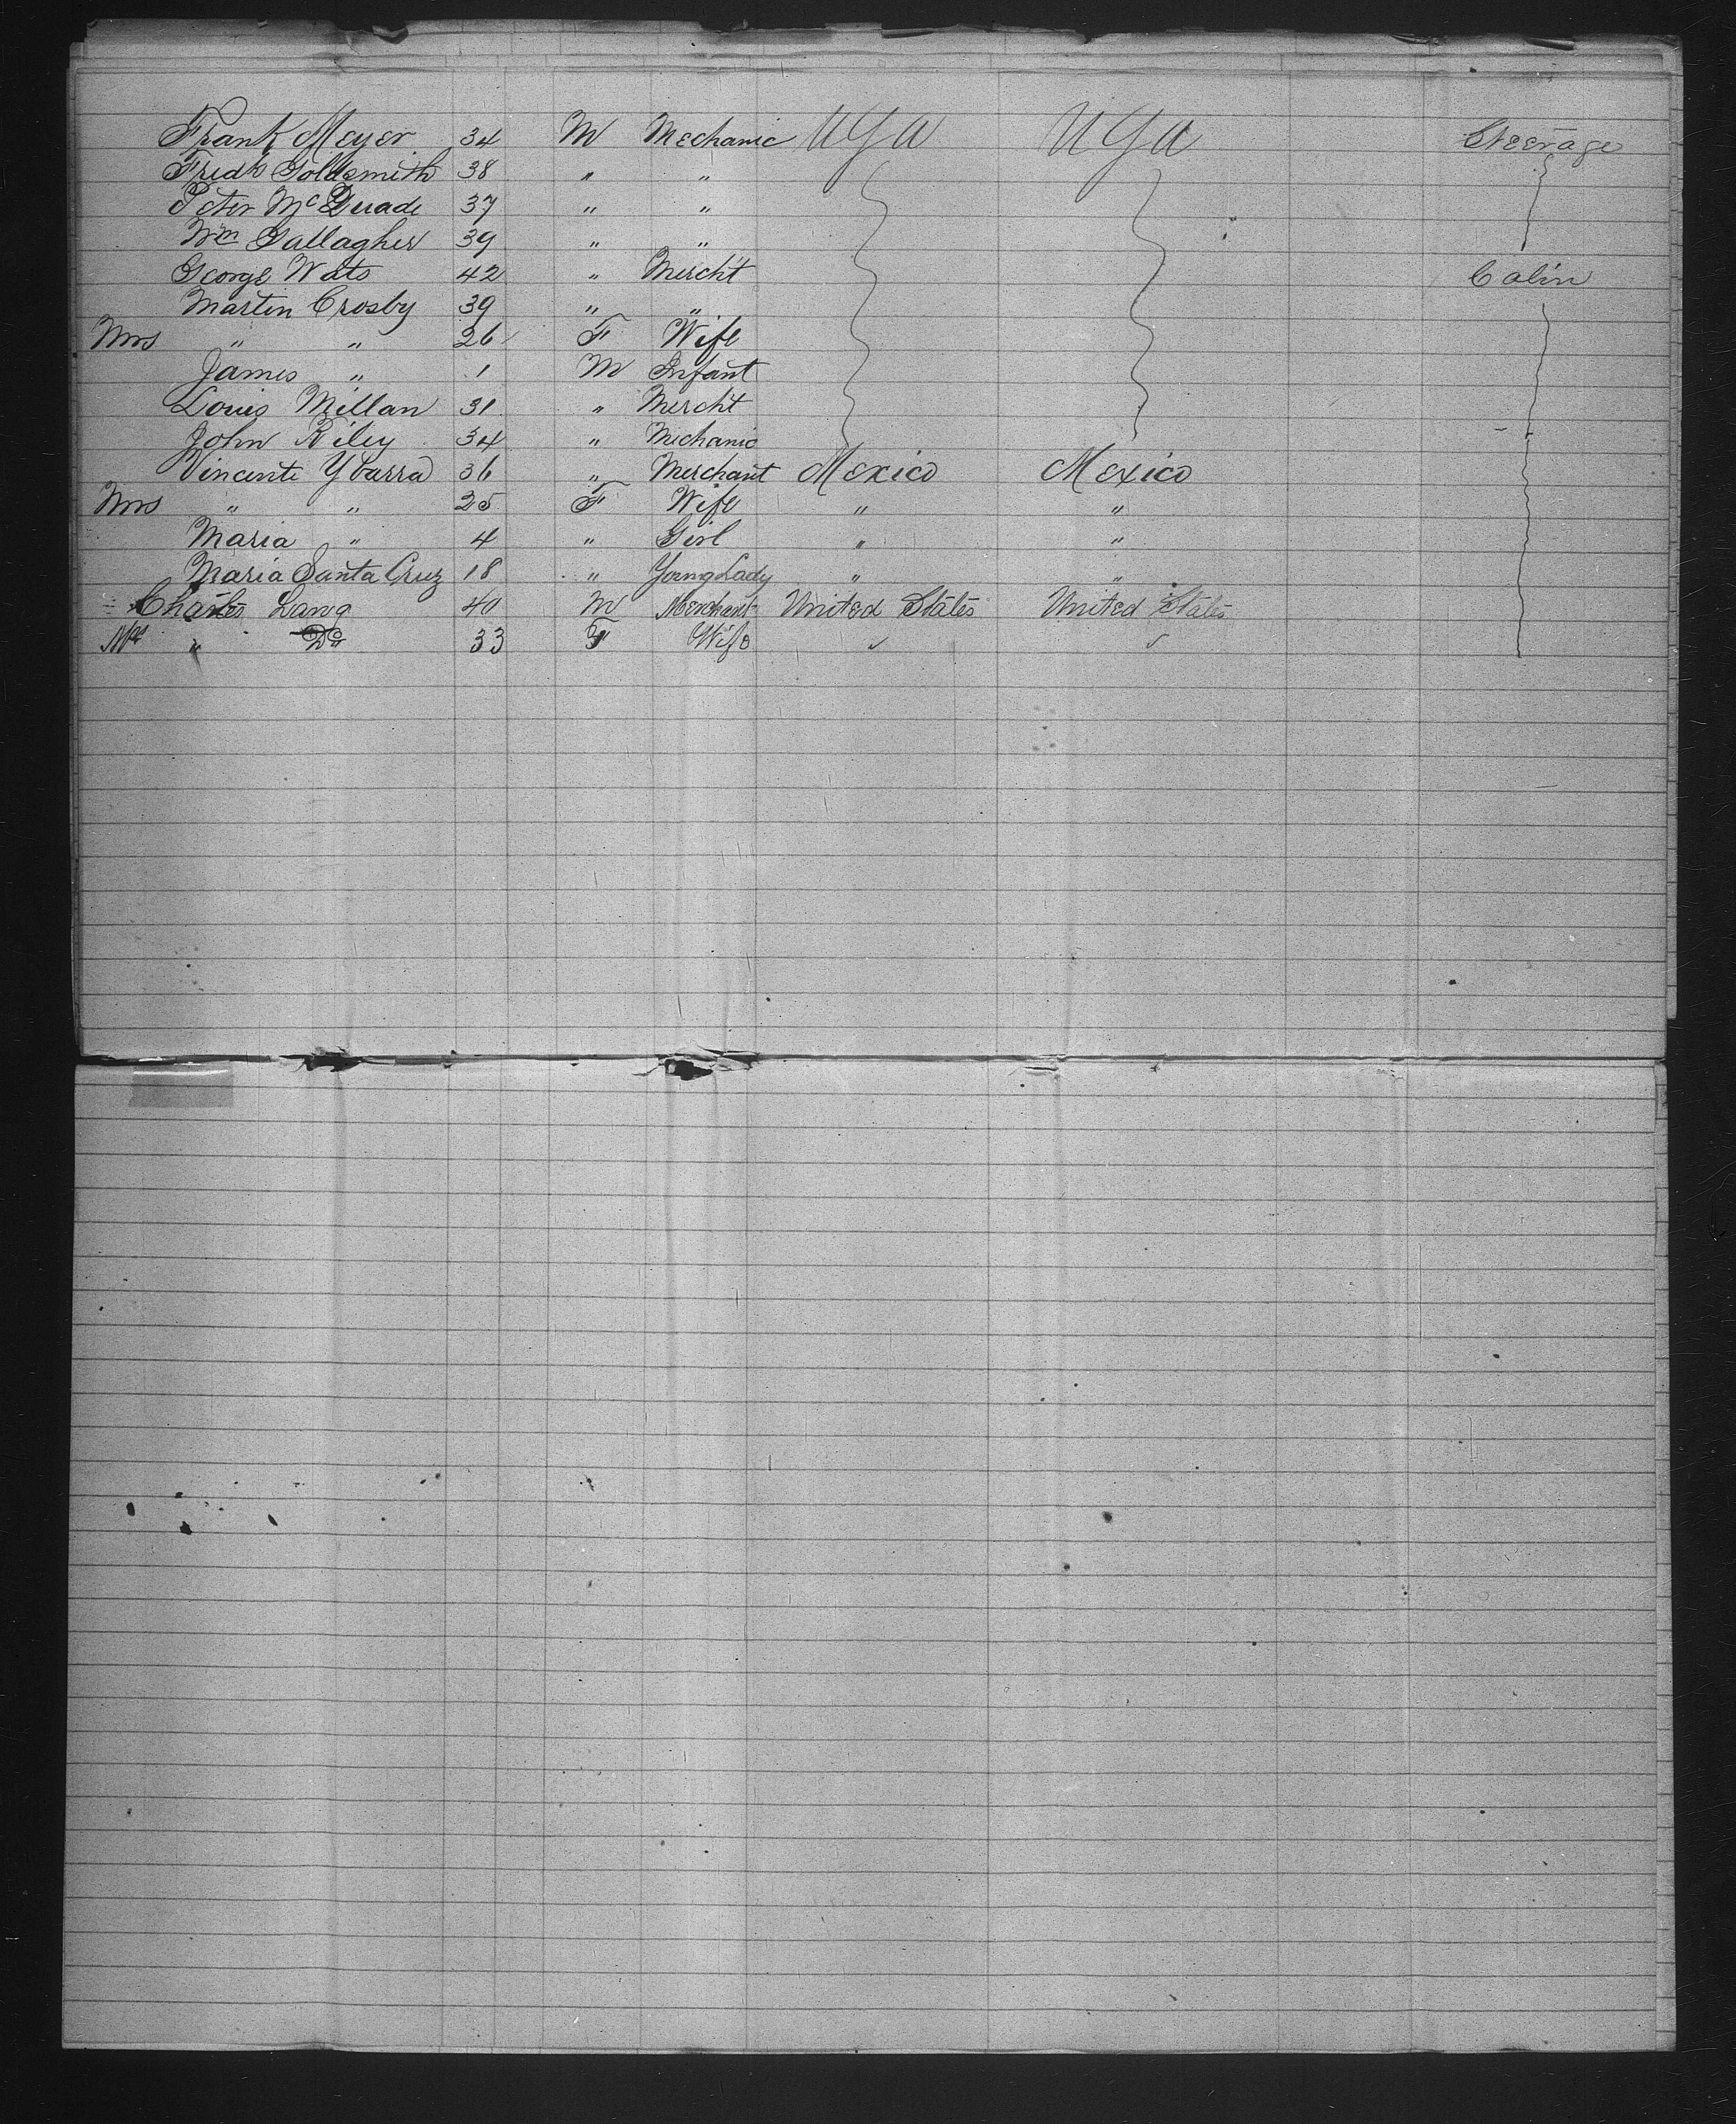 Frank Meyer 34 M Mechanic USA USA Steerage
Fredk Goldsmith 38 " "
Peter McQuade 37 " "
Wm Gallagher 39 " "
George Wats 42 " Mercht Cabin
Martin Crosby 39 " "
Mrs " " 26 F Wife
James " 1 M Infant
Louis Millan 31 " Mercht
John Riley 34 " Mechanic
Vincente Ybarra 36 " Merchant Mexico Mexico
Mrs " " 25 F Wife " "
Maria " 4 " Girl " "
Maria Santa Cruz 18 " Young Lady " "
Charles Lang 40 M Merchant United States United States
Mrs " Do 33 F Wife " "